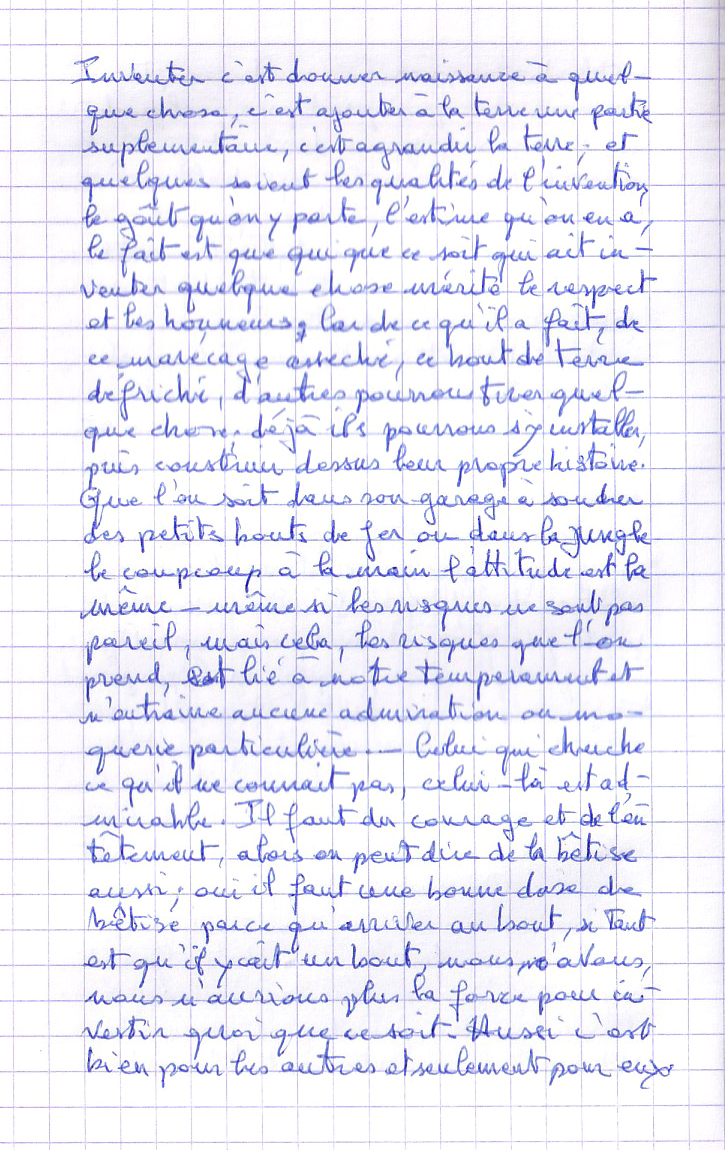 Inventer c'est donner naissance à quel-
que chose, c'est ajouter à la terre une partie
suplementaire, c'est agrandir la terre ; et
quelques soient les qualités de l'invention,
le goût qu'on y porte, l'estime qu'on en a,
le fait est que qui que ce soit qui ait in-
venter quelque chose mérite le respect
et les honneurs, Car de ce qu'il a fait, de
ce marécage asseché, ce bout de terre
défriché, d'autres pourrons tirer quel-
que chose, déjà ils pourrons s'y installer,
puis construir dessus leur propre histoire.
Que l'on soit dans son garage à souder
des petits bouts de fer ou dans la jungle
le coupcoup à la main l'attitude est la
même - même si les risques ne sont pas
pareil, mais cela, les risques que l'on
prend, est lié à notre temperament et
n'entraine aucune admiration ou mo-
querie particulière - Celui qui cherche
ce qu'il ne connait pas, celui-là est ad-
mirable. Il faut du courage et de l'en
têtement, alors on peut dire de la bêtise
aussi ; oui il faut une bonne dose de
bêtise parce qu'arriver au bout, si tant
est qu'il y ait un bout, nous n'avons,
nous n'aurions plus la force pour in-
vestir quoi que ce soit. Aussi c'est
bien pour les autres et seulement pour eux